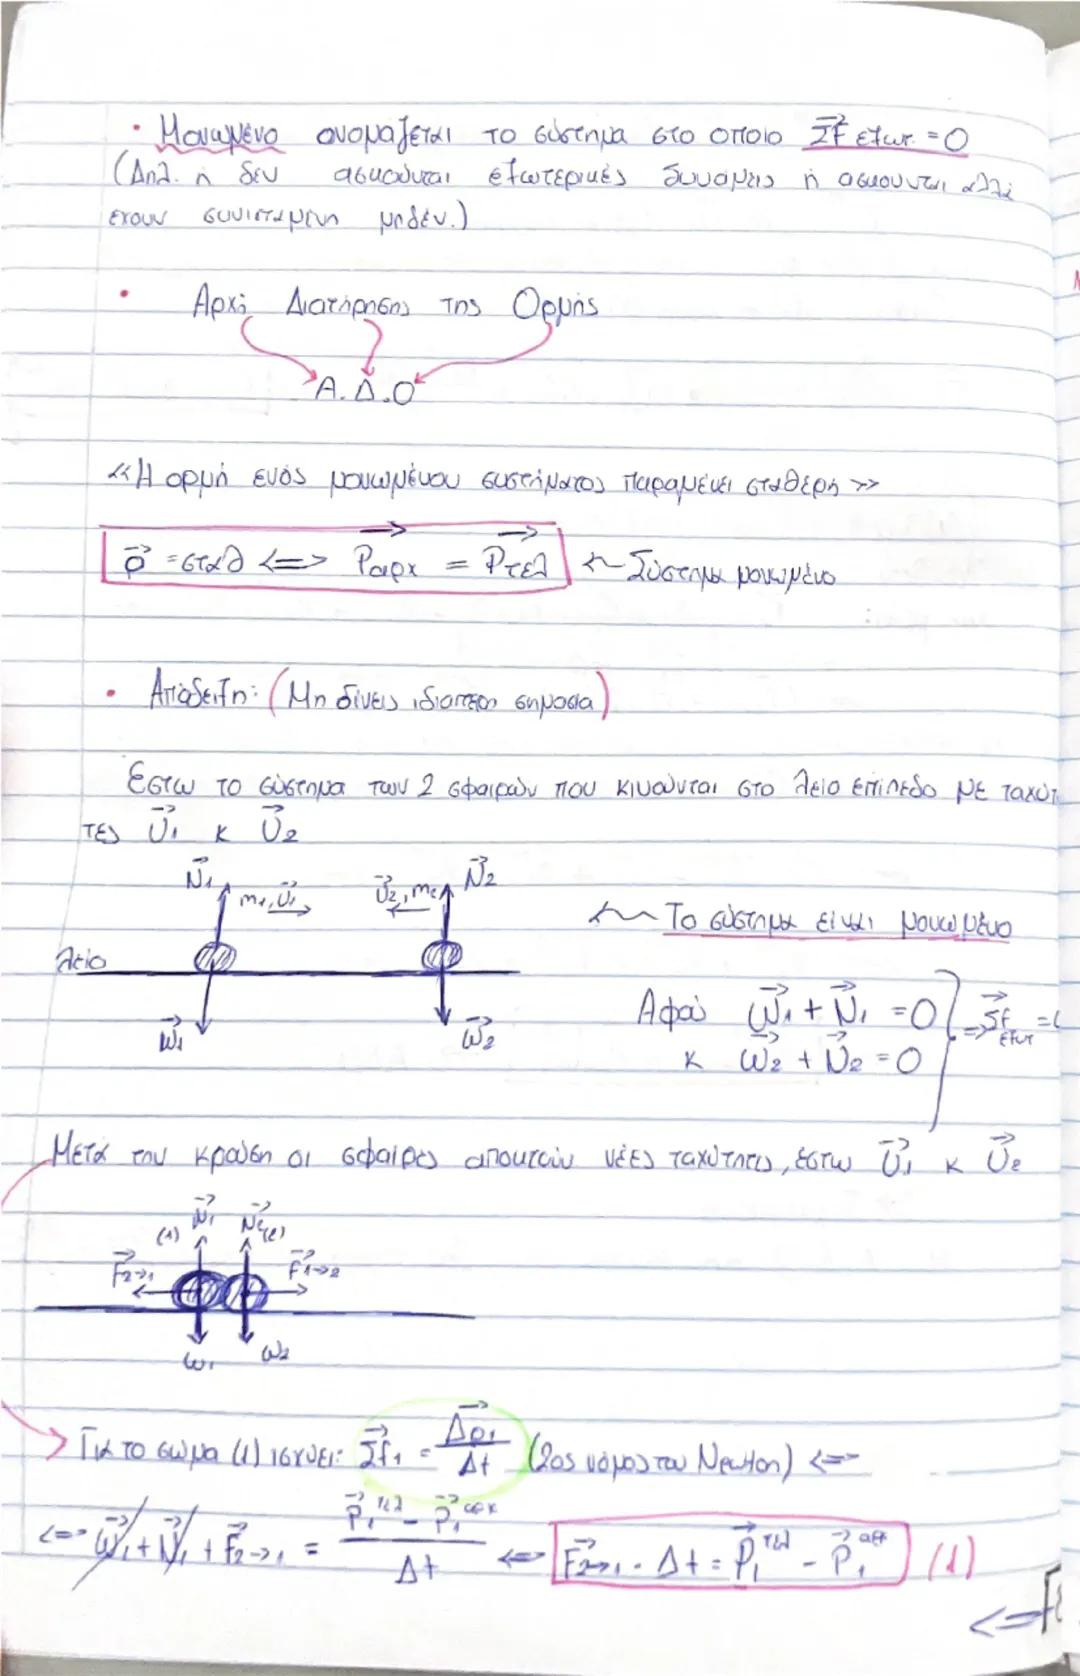 • Μονωμένο ονομάζεται το σύστημα στο οποίο Σf εξωτ. = 0
(Δηλ. ή δεν ασκούνται εξωτερικές δυνάμεις ή ασκουνται αλλά
εχουν συνισταμενη μηδέν.)
• Αρχή Διατήρησης της Ορμής
Α.Δ.Ο
«Η ορμή ενός μονωμένου συστήματος παραμένει σταθερή»
p = σταθ <=> Pαρχ = Pτελ <- Σύστημα μονωμένο
• Απόδειξη: (Μη δίνεις ιδιαιτερη σημασια)
Εστω το σύστημα των 2 σφαιρών που κινούνται στο λείο επίπεδο με ταχύτ
τες U1 κ U2
N1 m1, U1 U2, m2 N2
<- Το σύστημα είναι μονωμένο
λείο
Αφού W1 + N1 = 0
W1 W2 κ W2 + N2 = 0 => Σf εξωτ =
Μετά την κρούση οι σφαίρες αποκτούν νέες ταχύτητες, έστω U1 κ U2
(1) N1 N2 (2)
F2->1 F1->2
W1 W2
Για το σώμα (1) ισχύει: Σf1 = Δp1/Δt (2ος νόμος του Newton) <=>
<=> W1 + N1 + F2->1 = (P1 τελ - P1 αρχ)/Δt <=> F2->1 · Δt = P1 τελ - P1 αρχ (1)
<=>